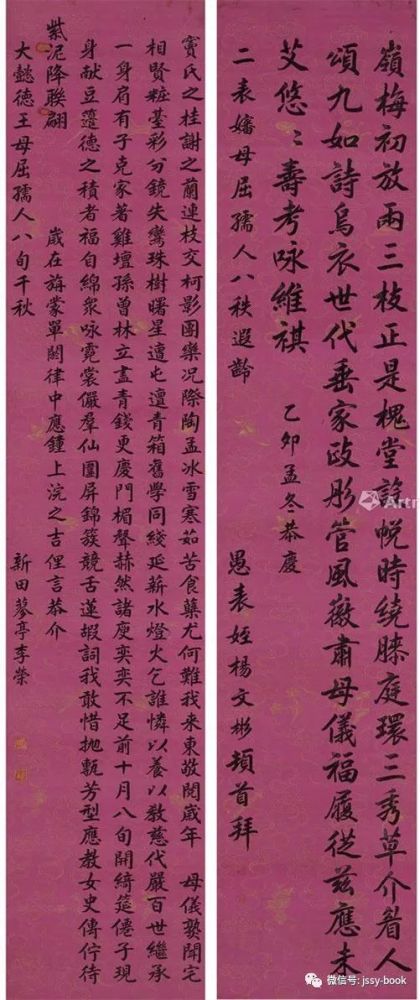 嶺梅初放兩三枝正是槐堂設帨時繞膝庭環三秀草介眉人
頌九如詩烏衣世代垂家政彤管風徽肅母儀福履從茲應未
艾悠悠壽考咏維祺
乙卯孟冬恭慶
二表嬸母屈孺人八秩遐齡
愚表姪楊文彬頓首拜
竇氏之桂謝之蘭連枝交柯影團欒況際陶孟冰雪寒茹苦食蘗尤何難我來東敬閱歲年 母儀褻聞宅
相賢粧臺彩分鏡失鸞珠樹曙星邅屯邅青箱舊學同綫延薪水燈火乞誰憐以養以教慈代嚴百世繼承
一身肩有子克家著雞壇孫曾林立盡青錢更慶門楣聲赫然諸庾奕奕不足前十月八旬開綺筵僊子現
身献豆籩德之積者福自綿衆咏霓裳儼羣仙圍屏錦簇競舌蓮嘏詞我敢惜拋甎芳型應教女史傳佇待
紫泥降聯翩
歲在旃蒙單閼律中應鍾上浣之吉俚言恭介
大懿德王母屈孺人八旬千秋
新田蓼亭李榮
Artr
微信号: jssy-book